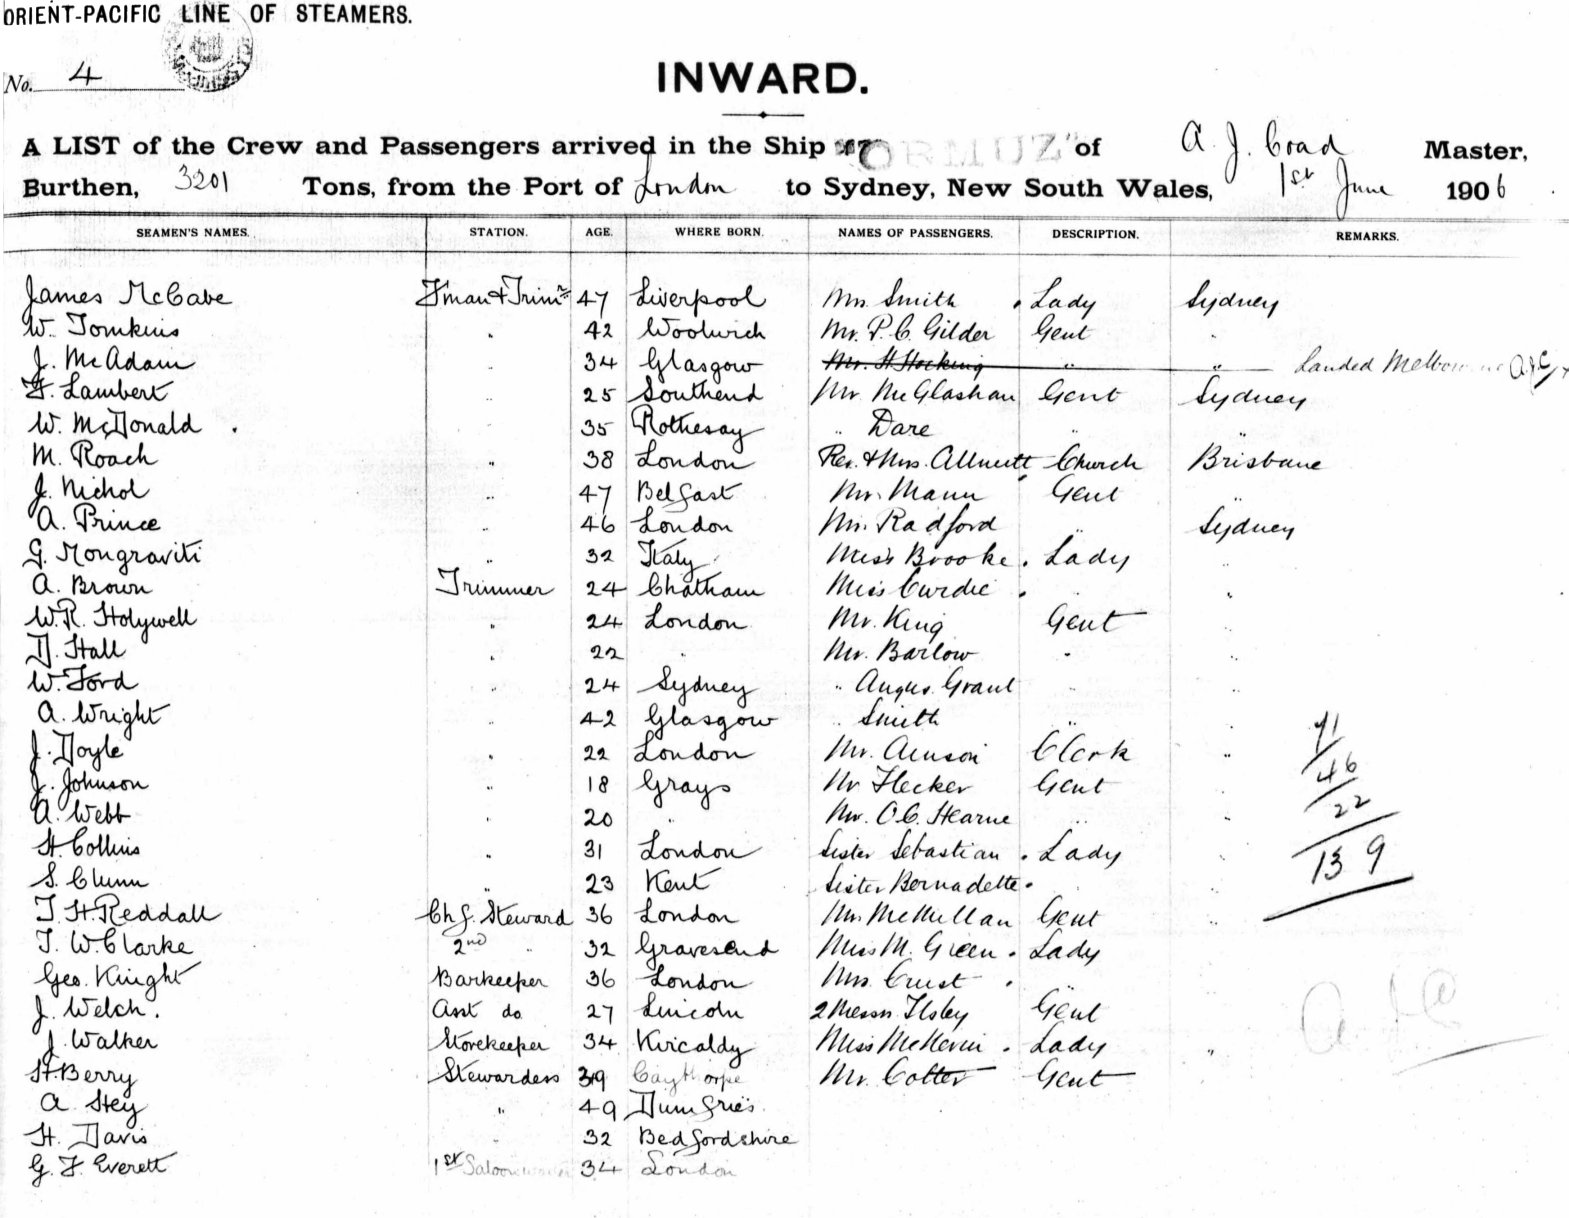 ORIENT-PACIFIC LINE OF STEAMERS.
No. 4
INWARD.
A LIST of the Crew and Passengers arrived in the Ship "ORMUZ" of A. J. Coad Master,
Burthen, 3201 Tons, from the Port of London to Sydney, New South Wales, 1st June 1906
SEAMEN'S NAMES. STATION. AGE. WHERE BORN. NAMES OF PASSENGERS. DESCRIPTION. REMARKS.
James McCabe F'man & Trimr 47 Liverpool Mrs. Smith . Lady Sydney
W. Tomkins " 42 Woolwich Mr. P. C. Gilder Gent "
J. McAdam 34 Glasgow Mr. H Hocking " " Landed Melbourne A.J.C
F. Lambert " 25 Southend Mr. McGlashan Gent Sydney
W. McDonald . 35 Rothesay " Dare " "
M. Roach " 38 London Rev. & Mrs. Allnutt Church Brisbane
J. Nichol " 47 Belfast Mr. Mann Gent "
A. Prince " 46 London Mr. Radford " Sydney
G. Mongraviti " 32 Italy Miss Brooke . Lady "
A. Brown Trimmer 24 Chatham Miss Curdie . " "
W. R. Holywell " 24 London Mr. King Gent "
D. Hall " 22 " Mr. Barlow " "
W. Ford " 24 Sydney " Angus Grant " "
A. Wright " 42 Glasgow " Smith " "
J. Doyle " 22 London Mr. Clerk "
J. Johnson " 18 Grays Mr Hecker Gent
A. Webb " 20 " Mr. O. C. Hearne "
H. Collins " 31 London Sister Sebastian . Lady "
S. Clunn " 23 Kent Sister Bernadette . " "
T. H. Reddall Chf. Steward 36 London Mr. McMullan Gent "
T. W. Clarke 2nd " 32 Gravesend Miss M. Green . Lady
Geo. Knight Barkeeper 36 London Mrs. Crust . "
J. Welch. Asst do 27 Lincoln 2 Messrs Ilsley Gent
J. Walker Storekeeper 34 Kircaldy Miss McKevin . Lady "
H. Berry Stewardess 39 Caythorpe Mr. Cotter Gent
A. Hey " 49 Dumfries
H. Davis " 32 Bedfordshire
G. F. Everett 1st Saloon 34 London
71
46
22
139
A.J.C